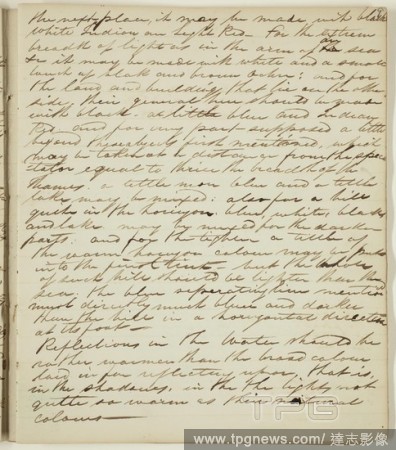 the next place, it may be made with black
white Indian or light Red. For the extrem
breadth of light as in the arm of an sea
& it may be made with white and a small
touch of black and brown Ochre: and for
the land and buildings that lie on the other
side, their general hue should be made
with black. a little blue and Indian
Red and for any part supposed a little
beyond the objects first mentioned, which
may be taken at a distance from the spec
tator equal to thrice the breadth of the
Thames, a little more blue and a little
lake may be mixed: also for a hill
quite in the horizon, blue, white, black
and lake may be mixed for the darker
parts; and for the lighter a little of
the warm horizon colour may be put
in to the first tint - but the whole
of such hills should be lighter than the
sea the blue
must directly much bluer and darker
than the hill in a horizontal direction
at its foot -
Reflections in the Water should be
rather warmer than the broad colour
laid in for reflecting upon, that is,
in the shadows, in the the lights not
quite so warm as their natural
colours
TPG
www.tpgnews.com/達志影像